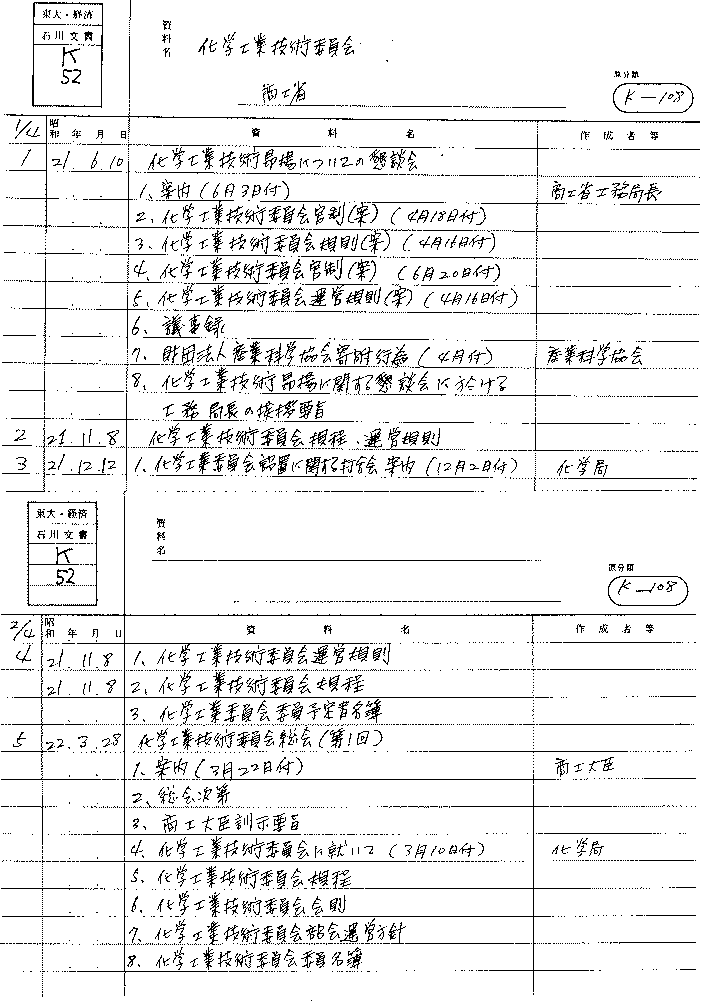 東大・経済
石川文書
K
52
資料名 化学工業技術委員会
商工省
原分類
K-108
1/4 昭和 年 月 日 資 料 名 作成者等
1 21. 6. 10 化学工業技術昂揚についての懇談会
1、案内(6月3日付) 商工省工務局長
2、化学工業技術委員会官制(案)(4月18日付)
3、化学工業技術委員会規則(案)(4月16日付)
4、化学工業技術委員会官制(案)(6月20日付)
5、化学工業技術委員会運営規則(案)(4月16日付)
6、議事録
7、財団法人産業科学協会寄附行為(4月付) 産業科学協会
8、化学工業技術昂揚に関する懇談会に於ける
工務局長の挨拶要旨
2 21. 11. 8 化学工業技術委員会規程、運営規則
3 21. 12. 12 1、化学工業委員会設置に関する打合会案内(12月2日付) 化学局
東大・経済
石川文書
K
52
資料名
原分類
K-108
2/4 昭和 年 月 日 資 料 名 作成者等
4 21. 11. 8 1、化学工業技術委員会運営規則
21. 11. 8 2、化学工業技術委員会規程
3、化学工業委員会委員予定者名簿
5 22. 3. 28 化学工業技術委員会総会(第1回)
1、案内(3月22日付) 商工大臣
2、総会次第
3、商工大臣訓示要旨
4、化学工業技術委員会に就いて(3月10日付) 化学局
5、化学工業技術委員会規程
6、化学工業技術委員会会則
7、化学工業技術委員会部会運営方針
8、化学工業技術委員会委員名簿